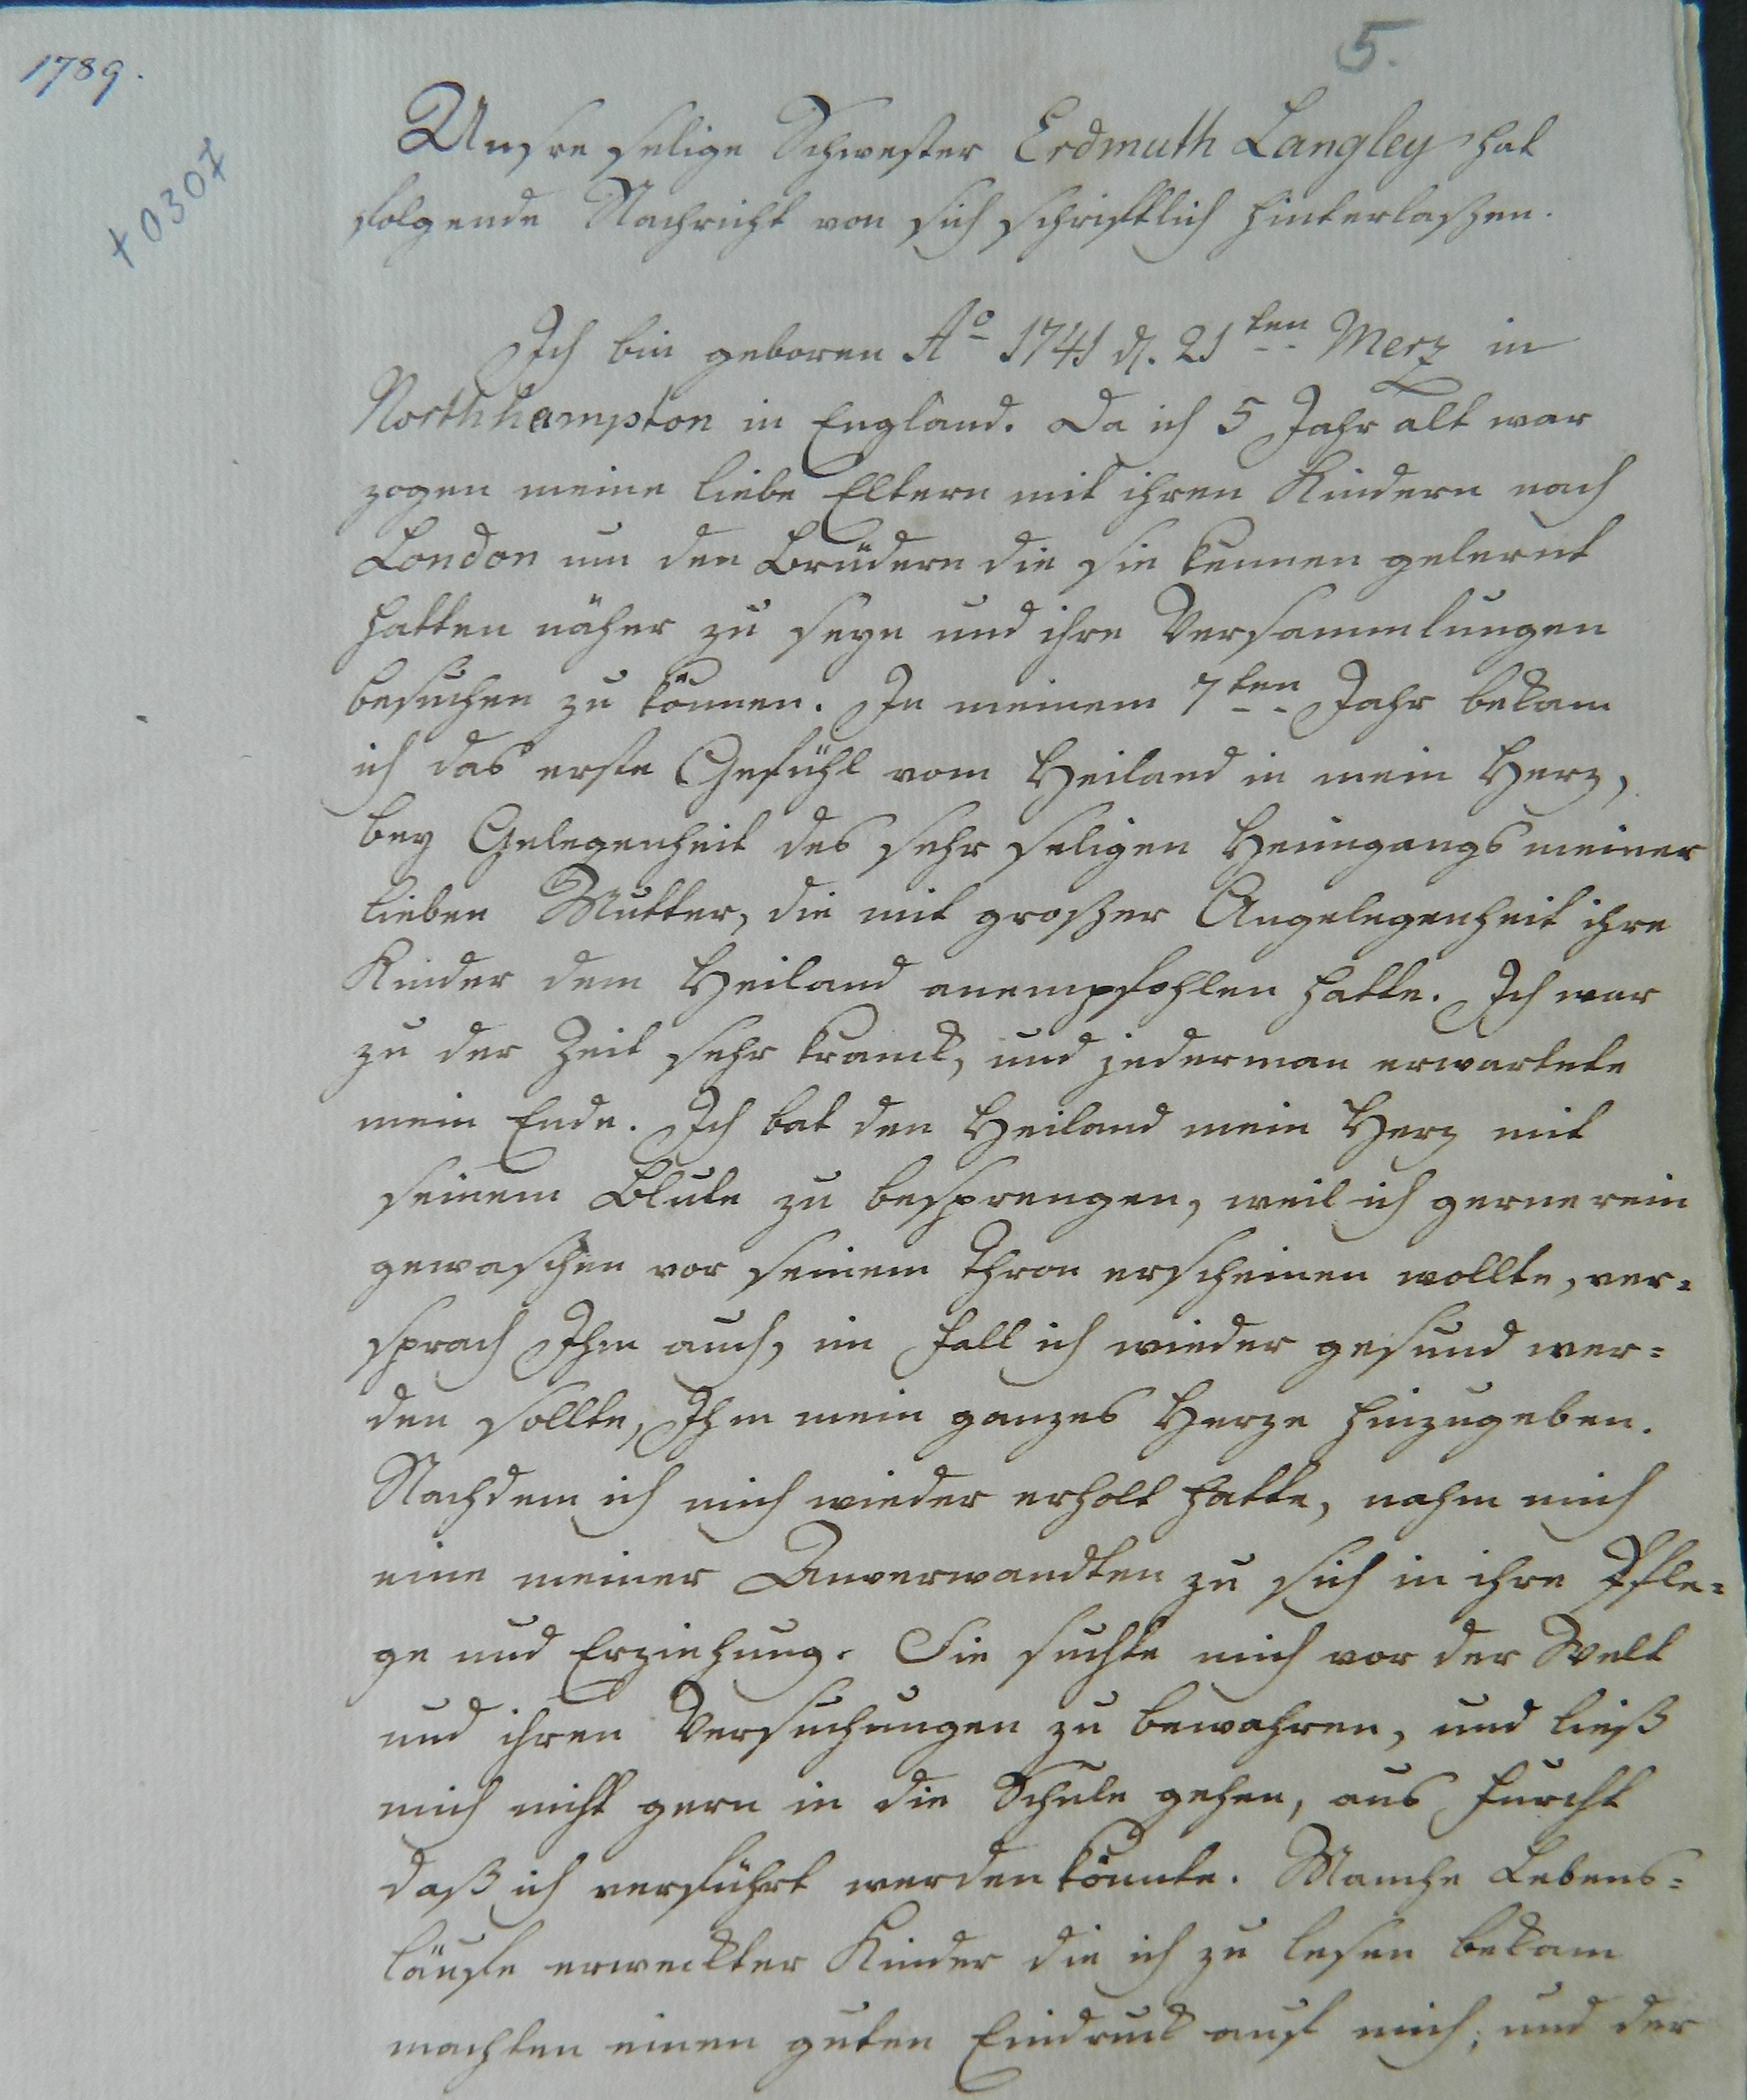 1789.
5.
+0307
Unsre selige Schwester Erdmuth Langley hat
folgende Nachricht von sich schriftlich hinterlaßen.
Ich bin geboren Ao 1741 d. 21ten Merz in
Northhampton in England. Da ich 5 Jahr alt war
zogen meine liebe Eltern mit ihren Kindern nach
London um den Brüdern die sie kennen gelernt
hatten näher zu seyn und ihre Versammlungen
besuchen zu können. In meinem 7ten Jahr bekam
ich das erste Gefühl vom Heiland in mein Herz,
bey Gelegenheit des sehr seligen Heimgangs meiner
lieben Mutter, die mit großer Angelegenheit ihre
Kinder dem Heiland anempfohlen hatte. Ich war
zu der Zeit sehr kranck, und jederman erwartete
mein Ende. Ich bat den Heiland mein Herz mit
seinem Blute zu besprengen, weil ich gerne rein
gewaschen vor seinem Thron erscheinen wollte, ver=
sprach Ihm auch, im Fall ich wieder gesund wer=
den sollte, Ihm mein ganzes Herze hinzugeben.
Nachdem ich mich wieder erholt hatte, nahm mich
eine meiner Anverwandten zu sich in ihre Pfle=
ge und Erziehung. Sie suchte mich vor der Welt
und ihren Versuchungen zu bewahren, und ließ
mich nicht gern in die Schule gehen, aus Furcht
daß ich verführt werden könnte. Manche Lebens=
läufe erweckter Kinder die ich zu lesen bekam
machten einen guten Eindruck auf mich; und der